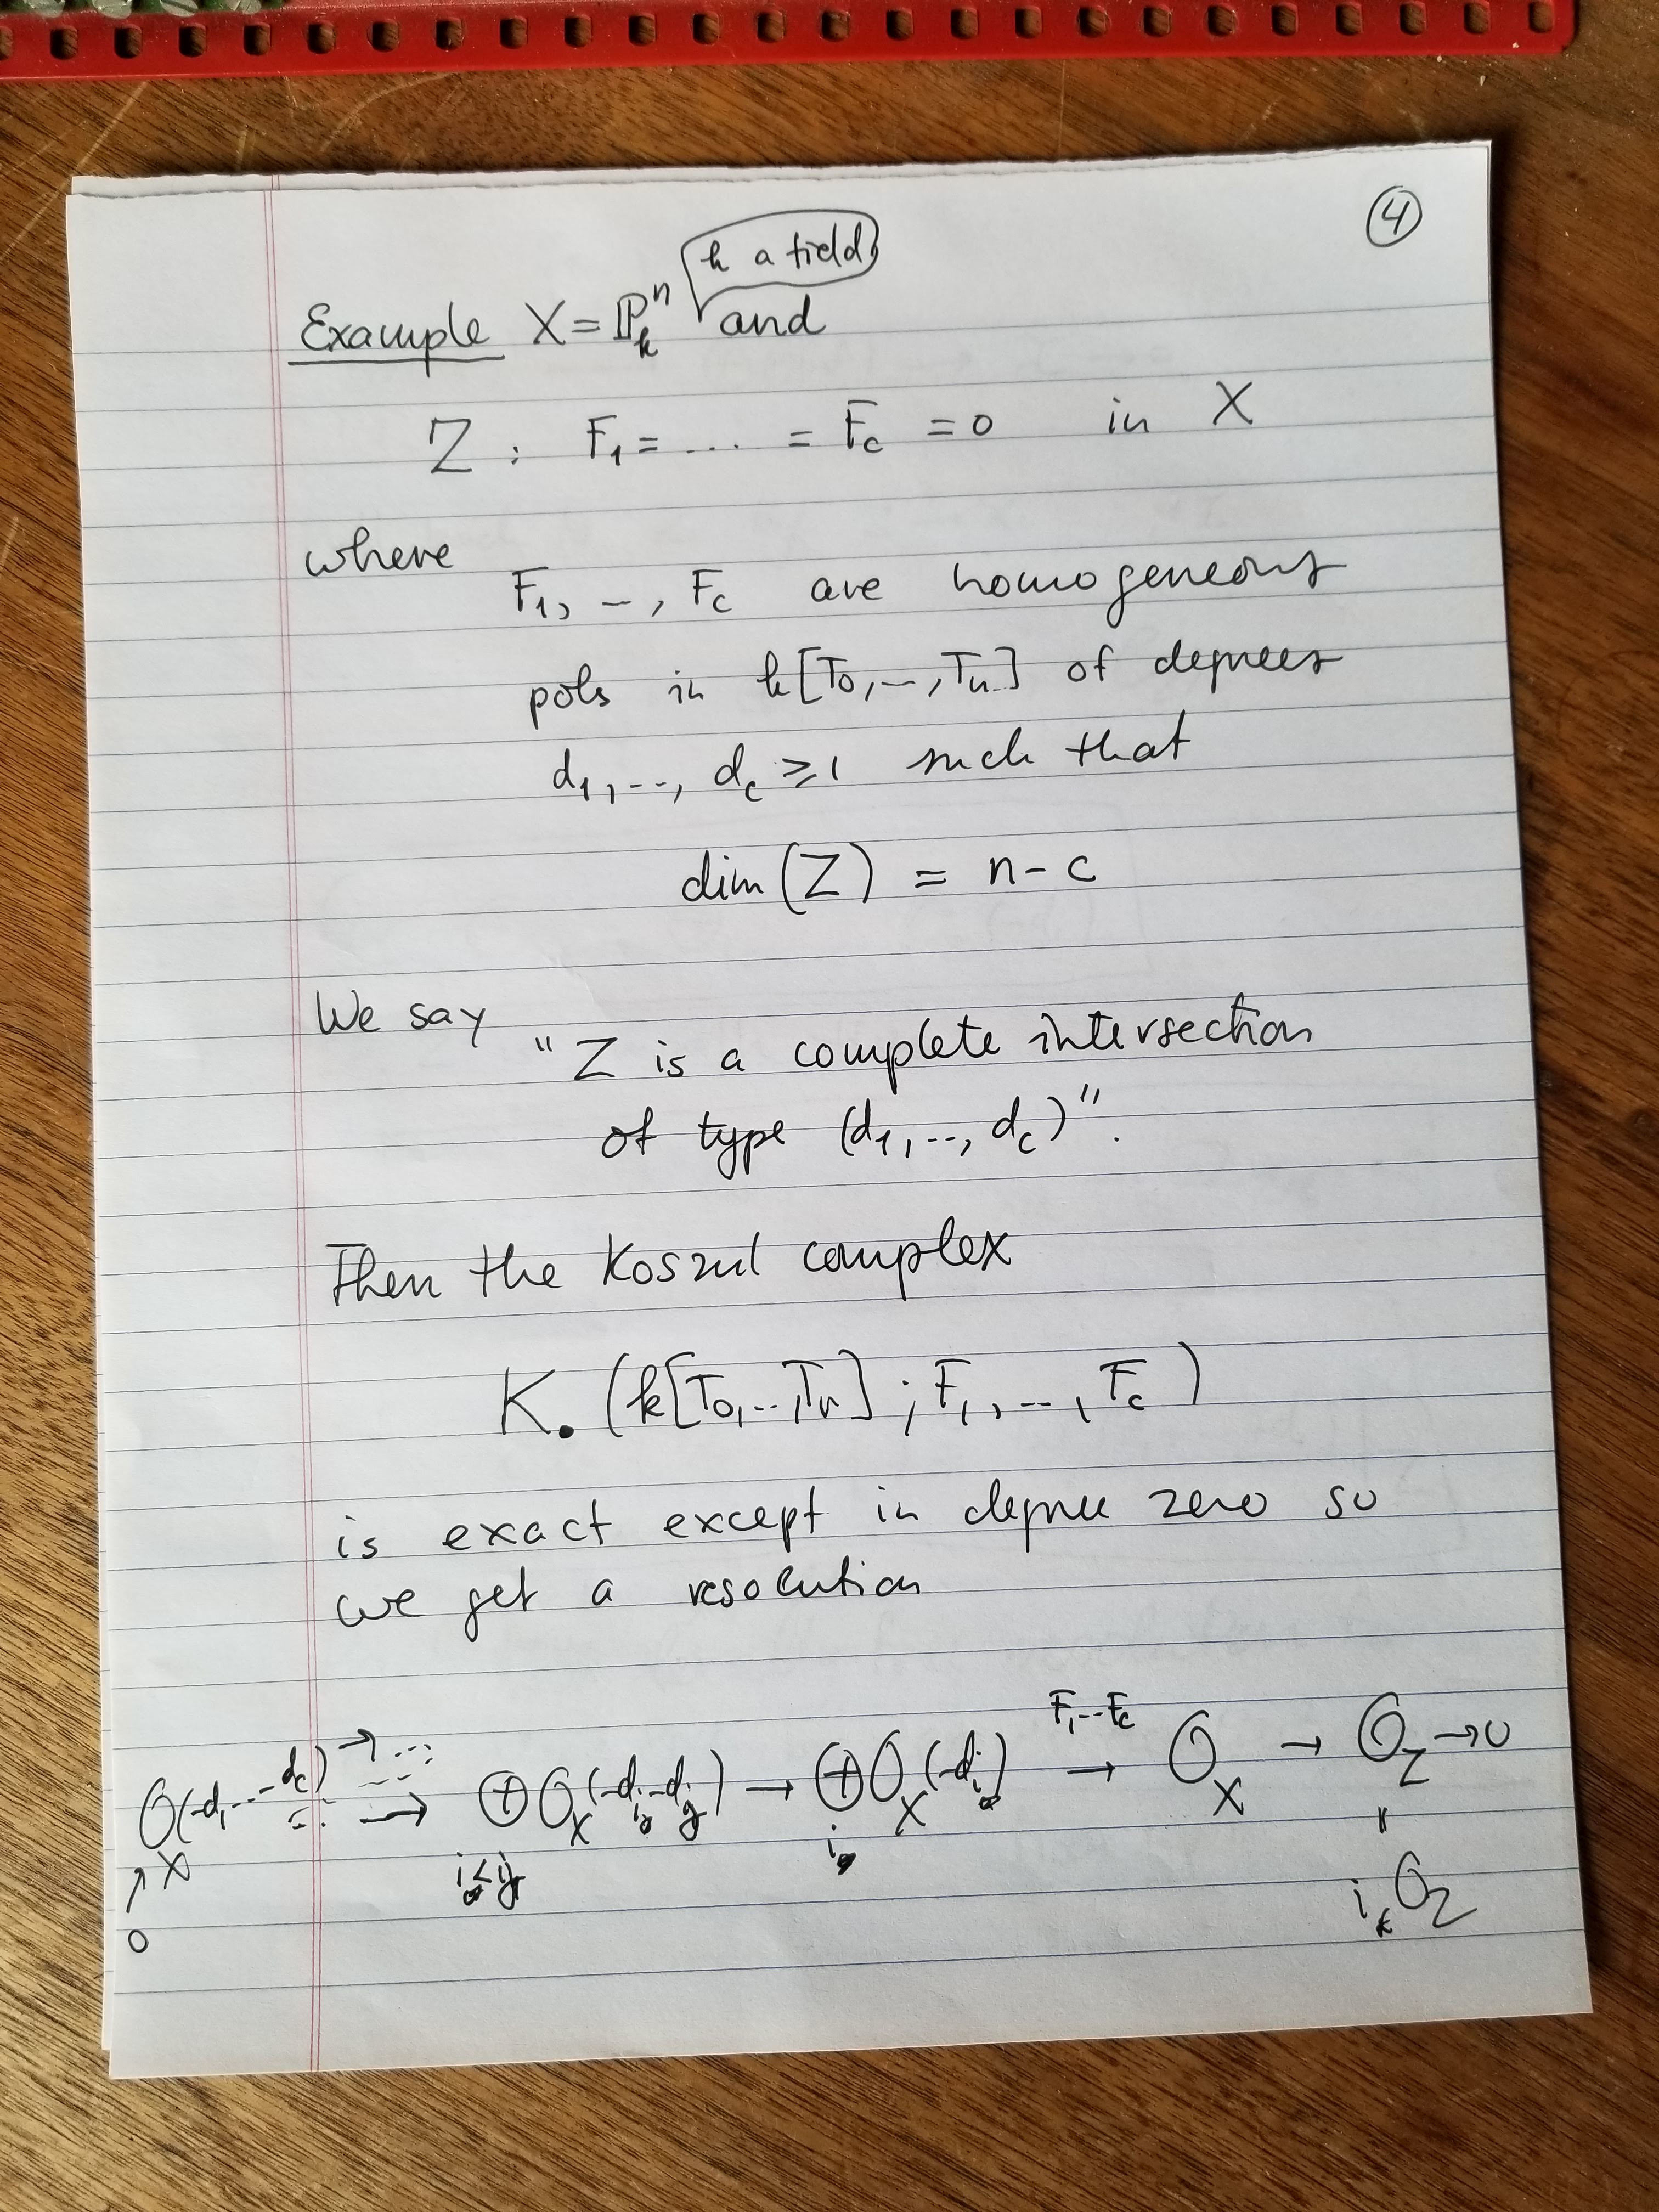 ④
k a field
Example X = ℙⁿₖ and
Z : F₁ = ... = F_c = 0 in X
where
F₁, -, F_c are homogeneous
pols in k[T₀, -, Tₙ] of degrees
d₁, .., d_c ⩾ 1 such that
dim(Z) = n - c
We say
"Z is a complete intersection
of type (d₁, .., d_c)".
Then the Koszul complex
K.(k[T₀, .., Tₙ] ; F₁, .., F_c)
is exact except in degree zero so
we get a resolution
0 → O_X(-d₁ ... -d_c) → ... → ⊕_{i<j} O_X(-d_i -d_j) → ⊕_i O_X(-d_i) →^{F₁ .. F_c} O_X → O_Z → 0
i_* O_Z